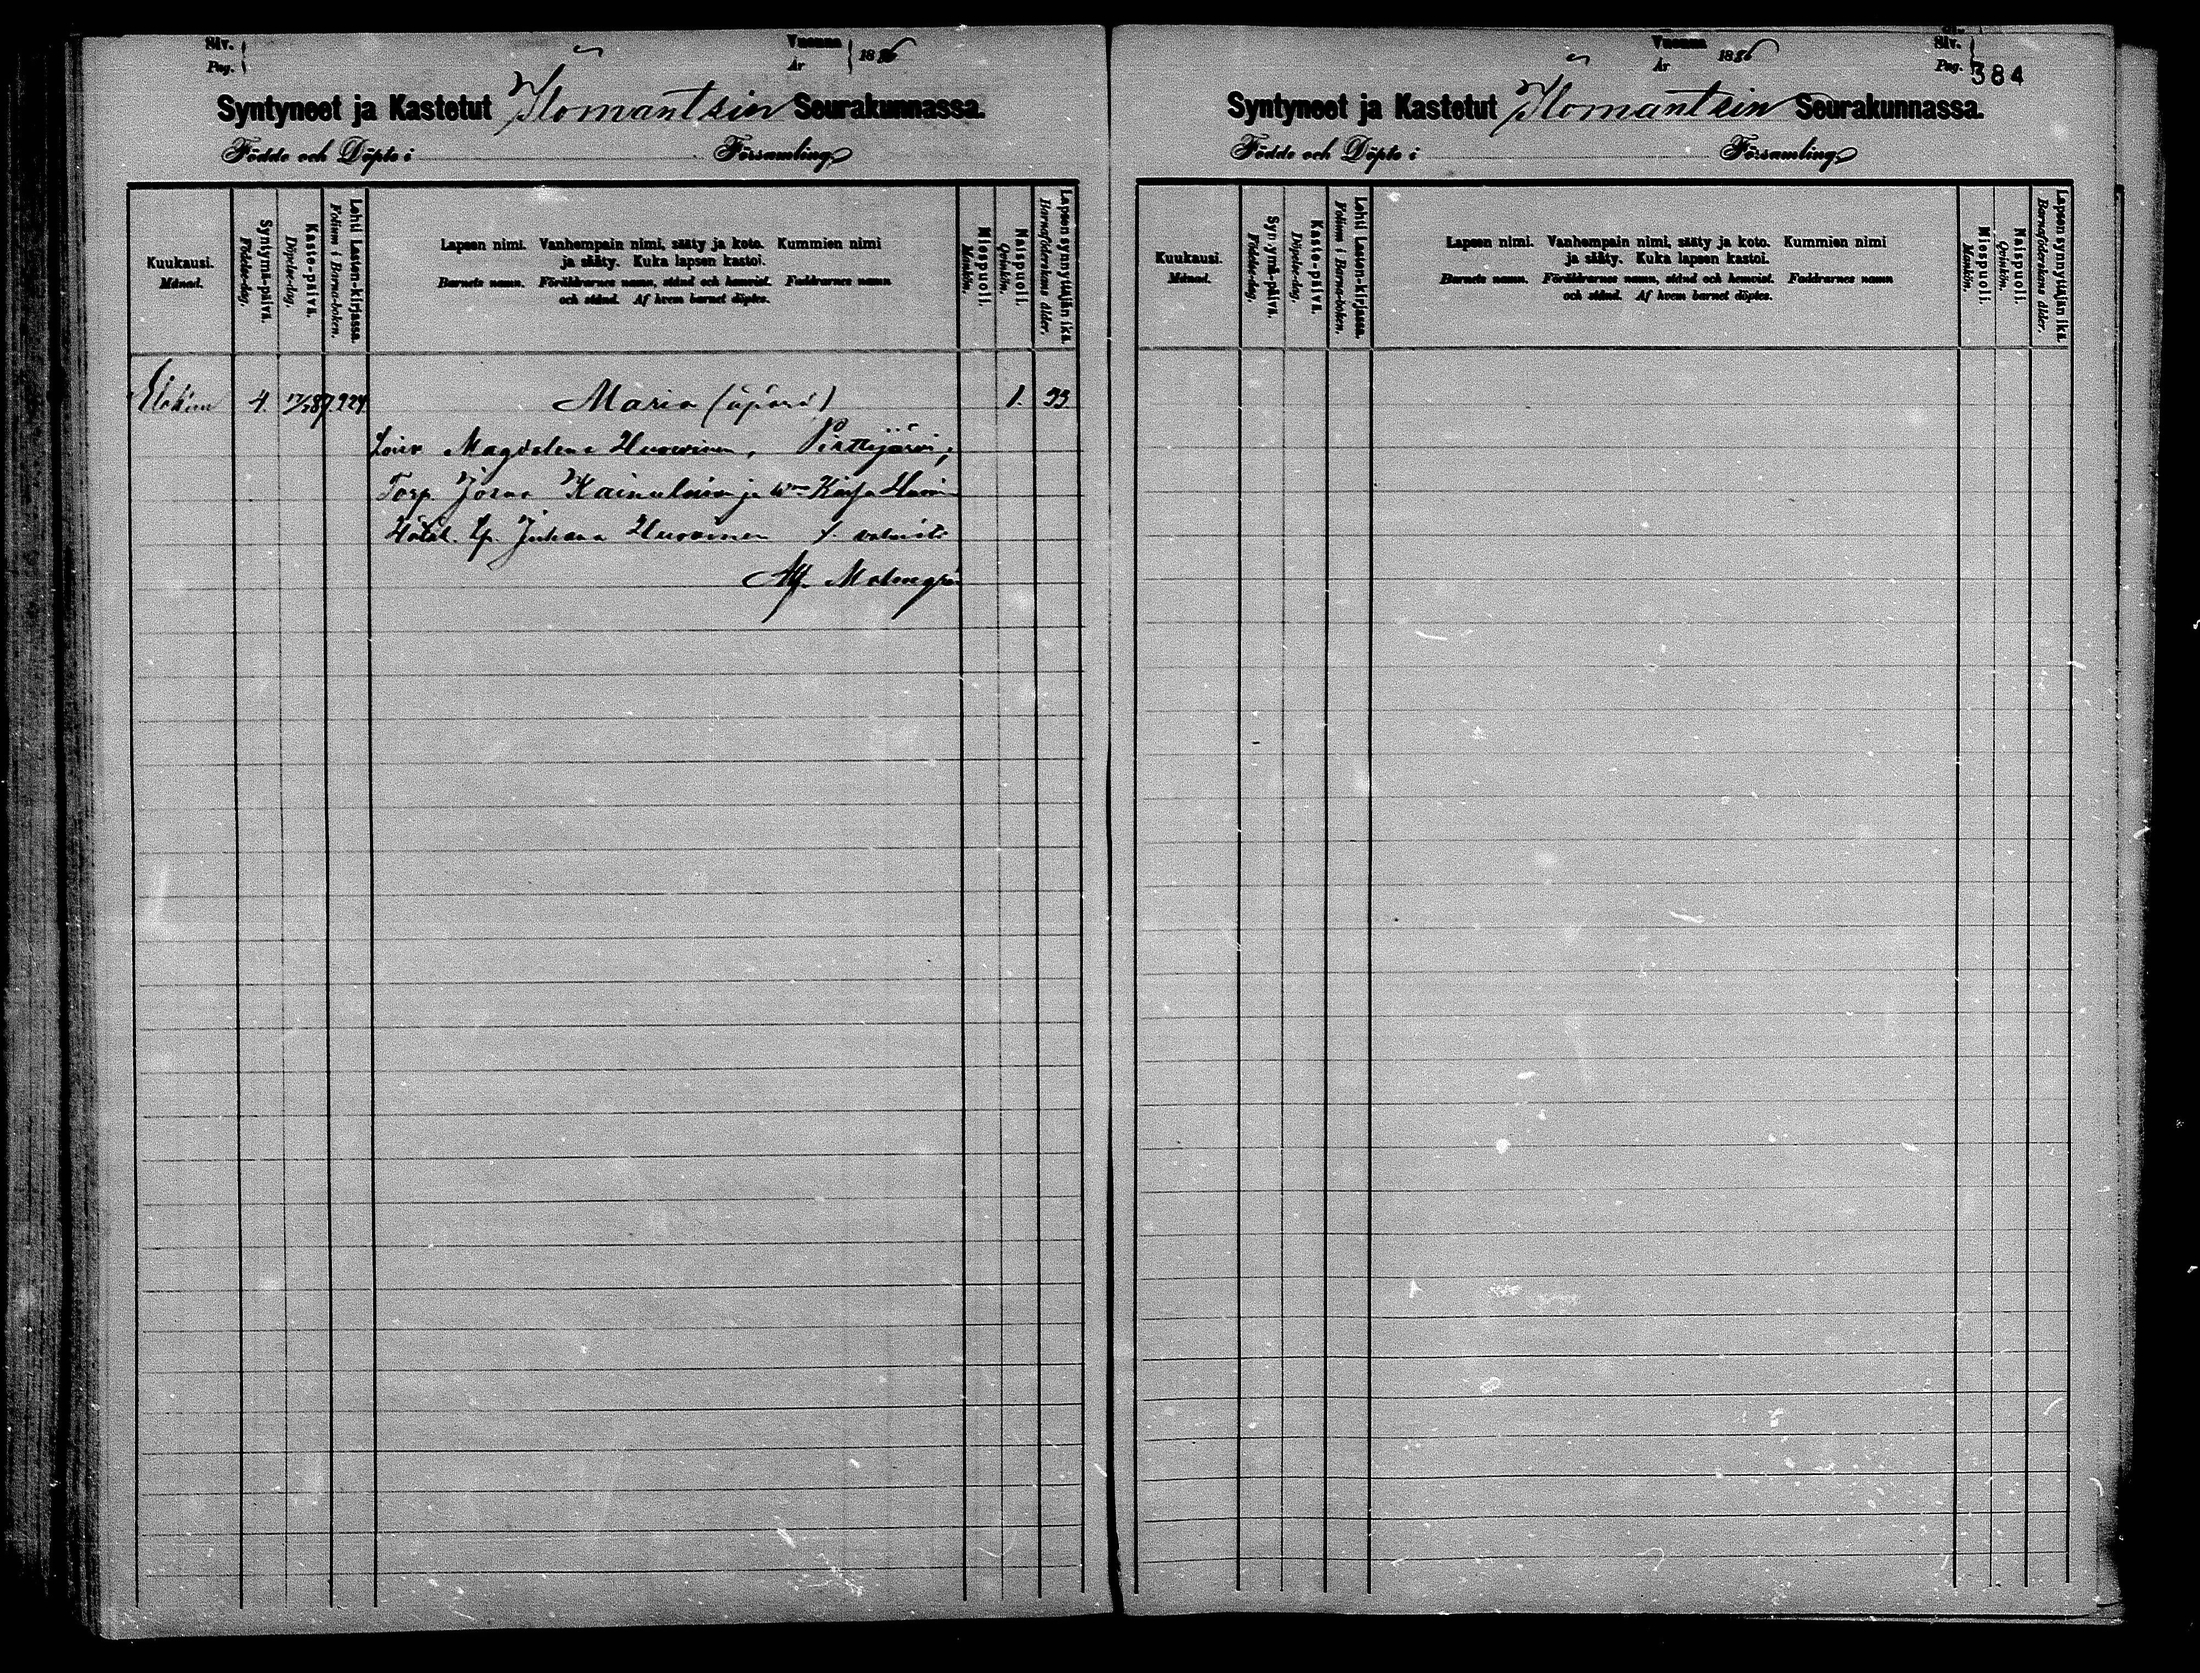 Siv.
Pag.
Vuonna
År
1886
Syntyneet ja Kastetut Ilomantsin Seurakunnassa.
Födde och Döpte i Församling
Kuukausi.
Månad.
Syntymä-päivä.
Födelse-dag.
Kaste-päivä.
Döpelse-dag.
Lehti Lasten-kirjassa.
Folium i Barna-boken.
Lapsen nimi. Vanhempain nimi, sääty ja koto. Kummien nimi
ja sääty. Kuka lapsen kastoi.
Barnets namn. Föräldrarnes namn, stånd och hemvist. Faddrarnes namn
och stånd. Af hvem barnet döptes.
Miespuoli.
Mankön.
Naispuoli.
Qvinkön.
Lapsen synnyttäjän ikä.
Barnaföderskans ålder.
Elokuu 4. 929. Maria (äpärä) 1. 33.
Magdalena Huovinen, Pirttijärvi,
Torp. Kainulainen ja
Juhana Huovinen
Alf. Malmgrén
Vuonna
År
1886
Siv.
Pag.
384
Syntyneet ja Kastetut Ilomantsin Seurakunnassa.
Födde och Döpte i Församling
Kuukausi.
Månad.
Syntymä-päivä.
Födelse-dag.
Kaste-päivä.
Döpelse-dag.
Lehti Lasten-kirjassa.
Folium i Barna-boken.
Lapsen nimi. Vanhempain nimi, sääty ja koto. Kummien nimi
ja sääty. Kuka lapsen kastoi.
Barnets namn. Föräldrarnes namn, stånd och hemvist. Faddrarnes namn
och stånd. Af hvem barnet döptes.
Miespuoli.
Mankön.
Naispuoli.
Qvinkön.
Lapsen synnyttäjän ikä.
Barnaföderskans ålder.